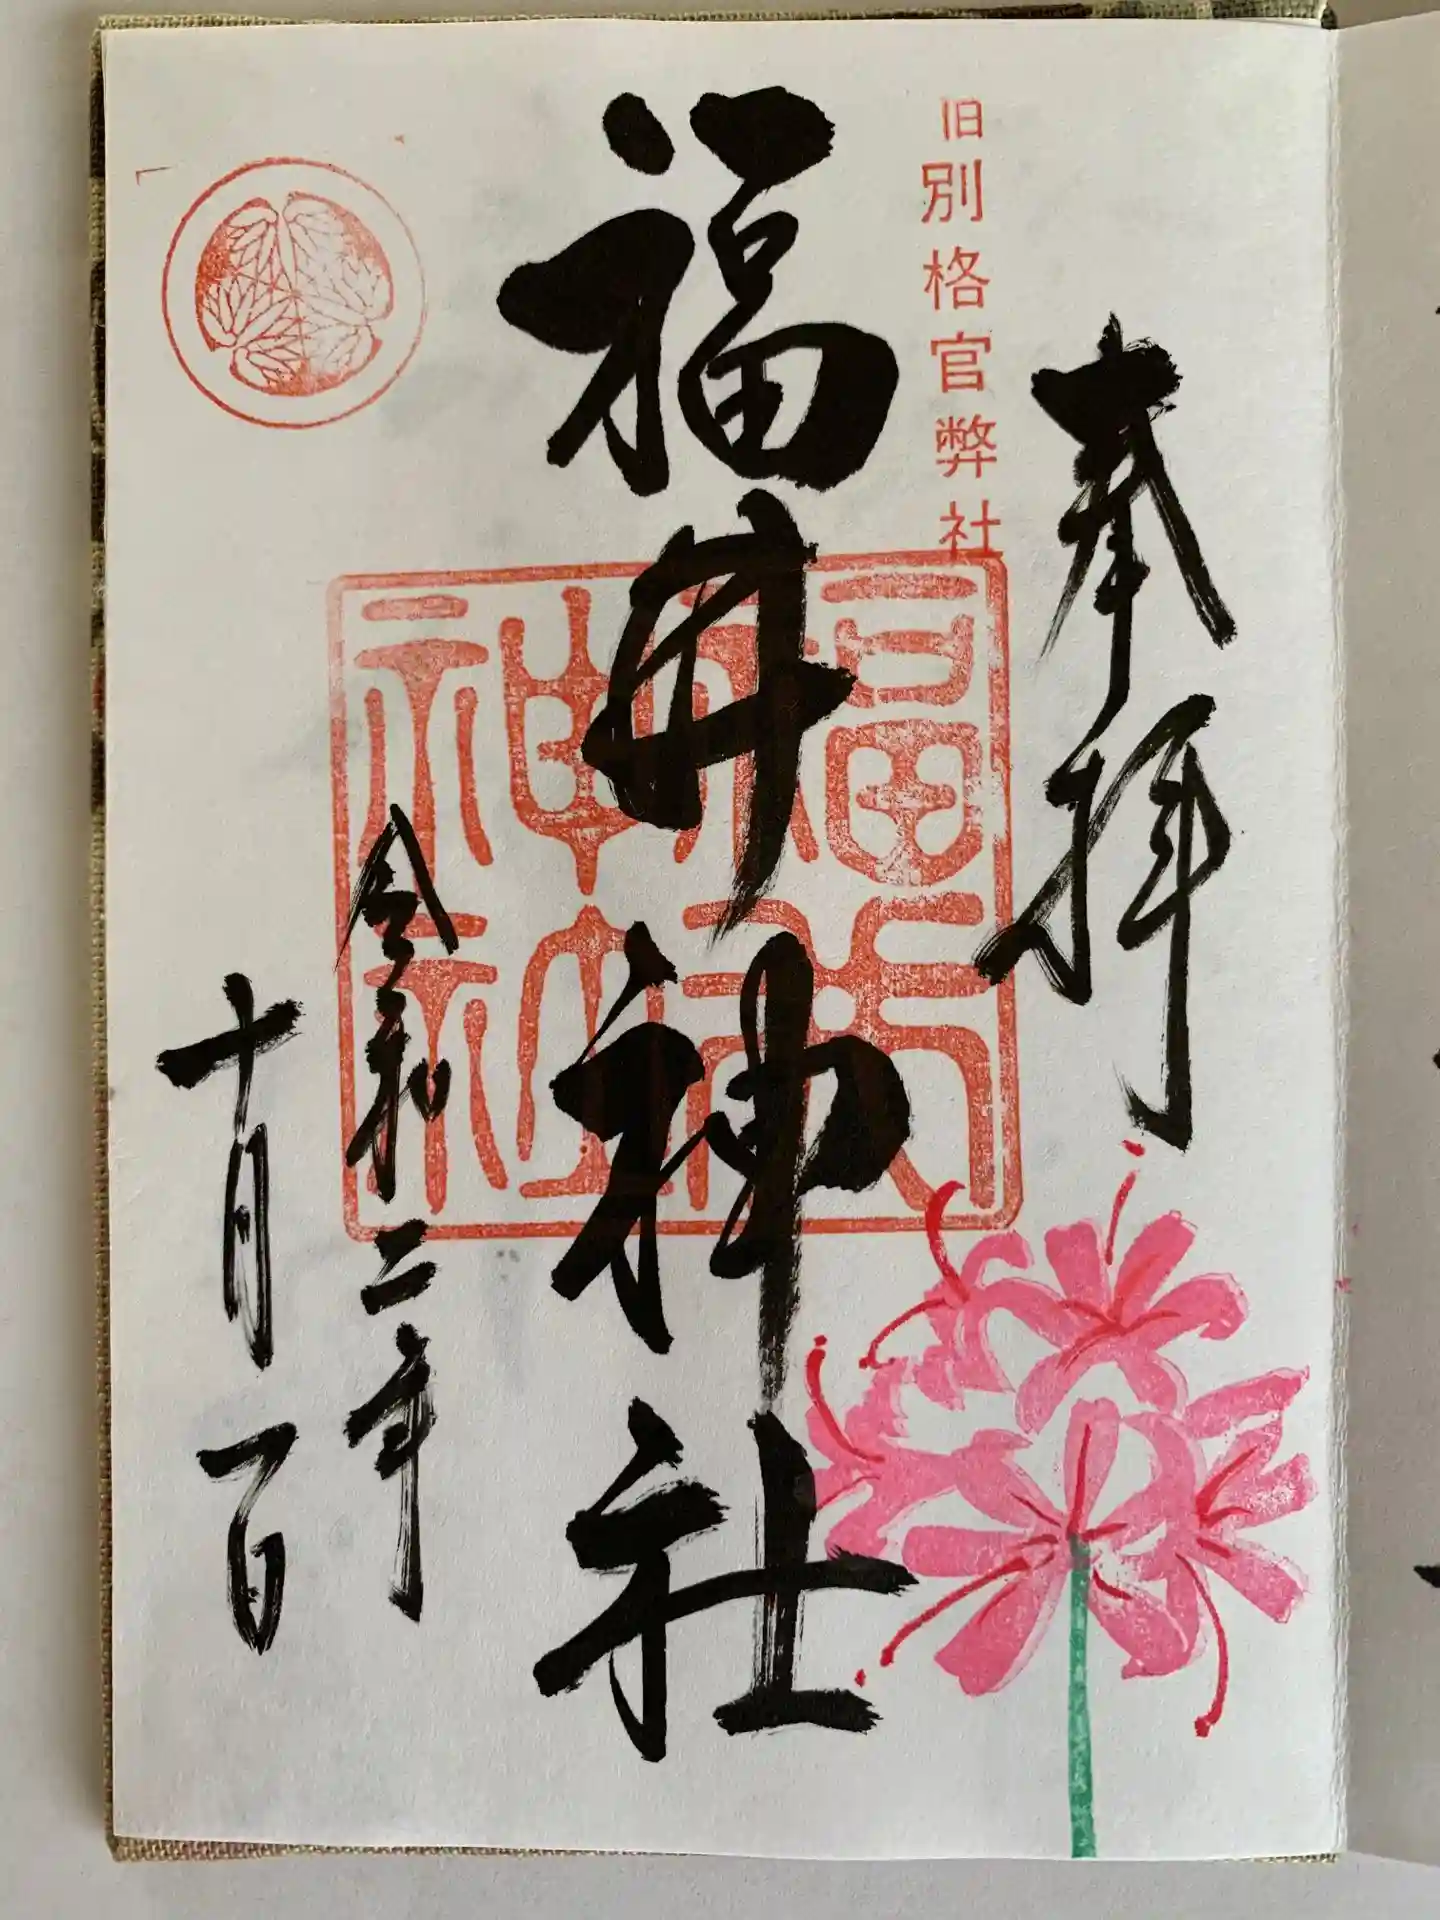 奉拝
旧別格官弊社
福井神社
福井神社
令和二年
十月一日